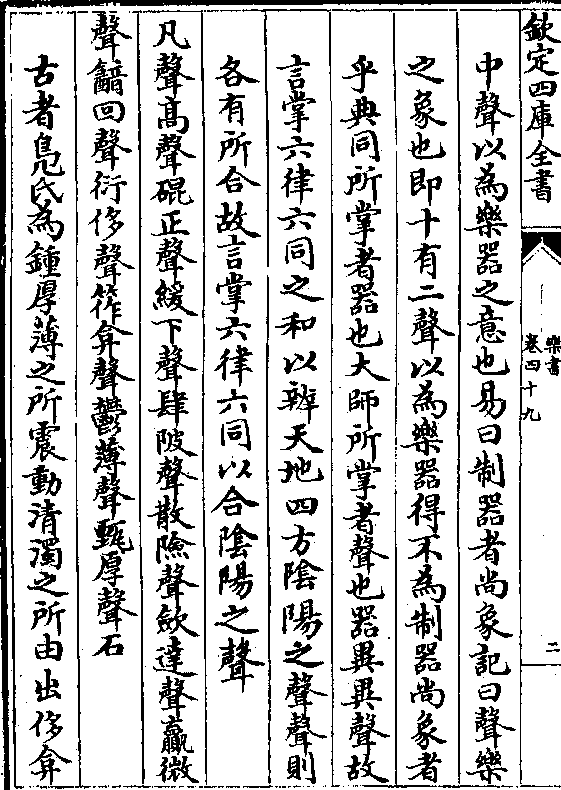 欽定四庫全書
樂書
卷四十九
二
中聲以為樂器之意也易曰制器者尚象記曰聲樂
之象也即十有二聲以為樂器得不為制器尚象者
乎典同所掌者器也大師所掌者聲也器異異聲故
言掌六律六同之和以辨天地四方陰陽之聲聲則
各有所合故言掌六律六同以合陰陽之聲
凡聲髙聲硍正聲緩下聲肆陂聲散險聲斂達聲贏微
聲韽回聲衍侈聲筰弇聲鬱薄聲甄厚聲石
古者鳬氏為鍾厚薄之所震動清濁之所由出侈弇